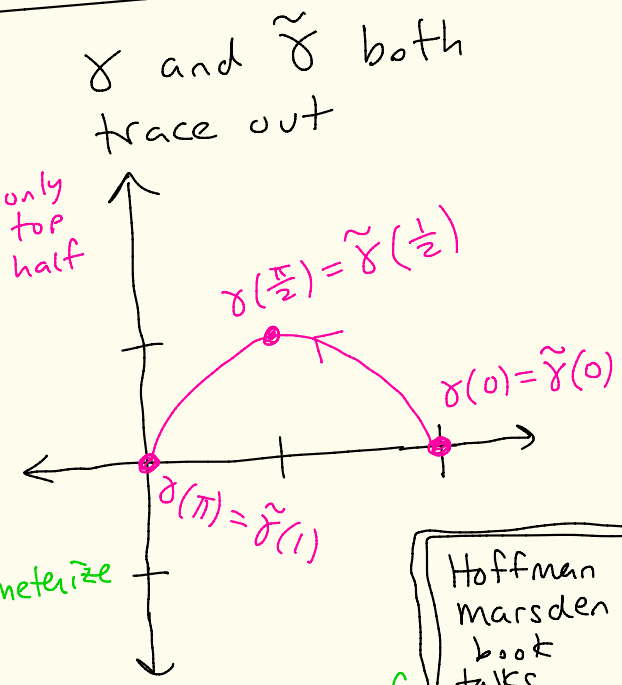 γ and γ̃ both
trace out
only
top
half
γ(π/2) = γ̃(1/2)
γ(0) = γ̃(0)
γ(π) = γ̃(1)
neterize
Hoffman
marsden
book
talks